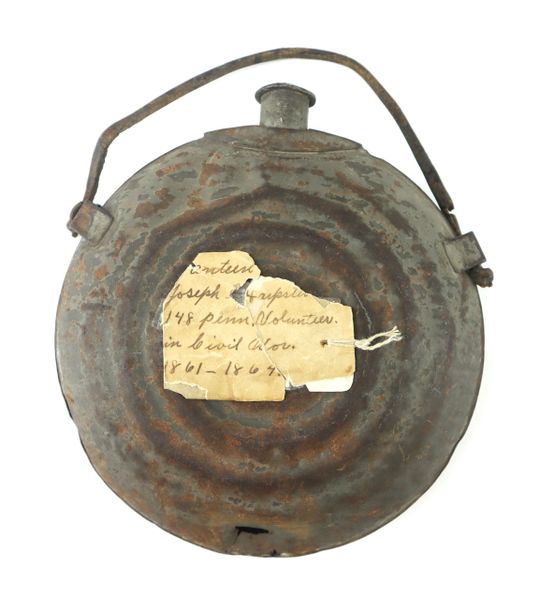 anteen
Joseph
148 penn. Volunteer.
in Civil War.
1861-1864.